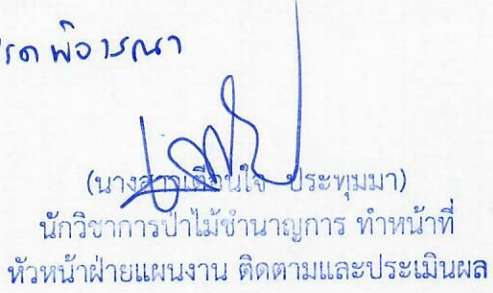 พิจารณา
(นางสาวเตือนใจ ประทุมมา)
นักวิชาการป่าไม้ชำนาญการ ทำหน้าที่
หัวหน้าฝ่ายแผนงาน ติดตามและประเมินผล